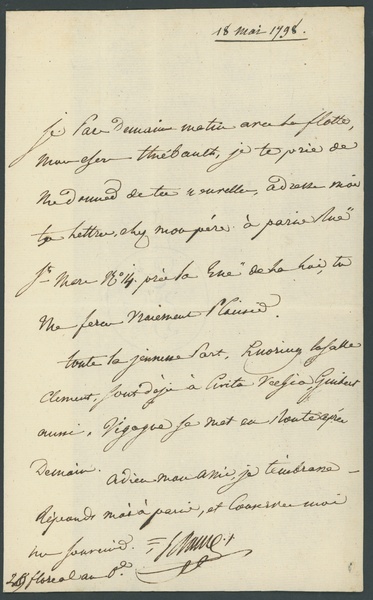 18 mai 1798.
je Pars Demain matin avec la flotte,
mon cher thiébault, je te prie de
me donner de tes nouvelles, adresse moi
ta lettre, chez mon père à paris Rue
St Marc No 14. près la Rue de la loi, tu
me feras vraiement Plaisir.
toute la jeunesse Part, lasalle
Clement, sont déjà à Civita Vechia Guibert
aussi, se met en Route après
Demain. adieu mon ami, je t'embrasse
Réponds moi à paris, et Conserve moi
ton souvenir.
floreal an 6e.